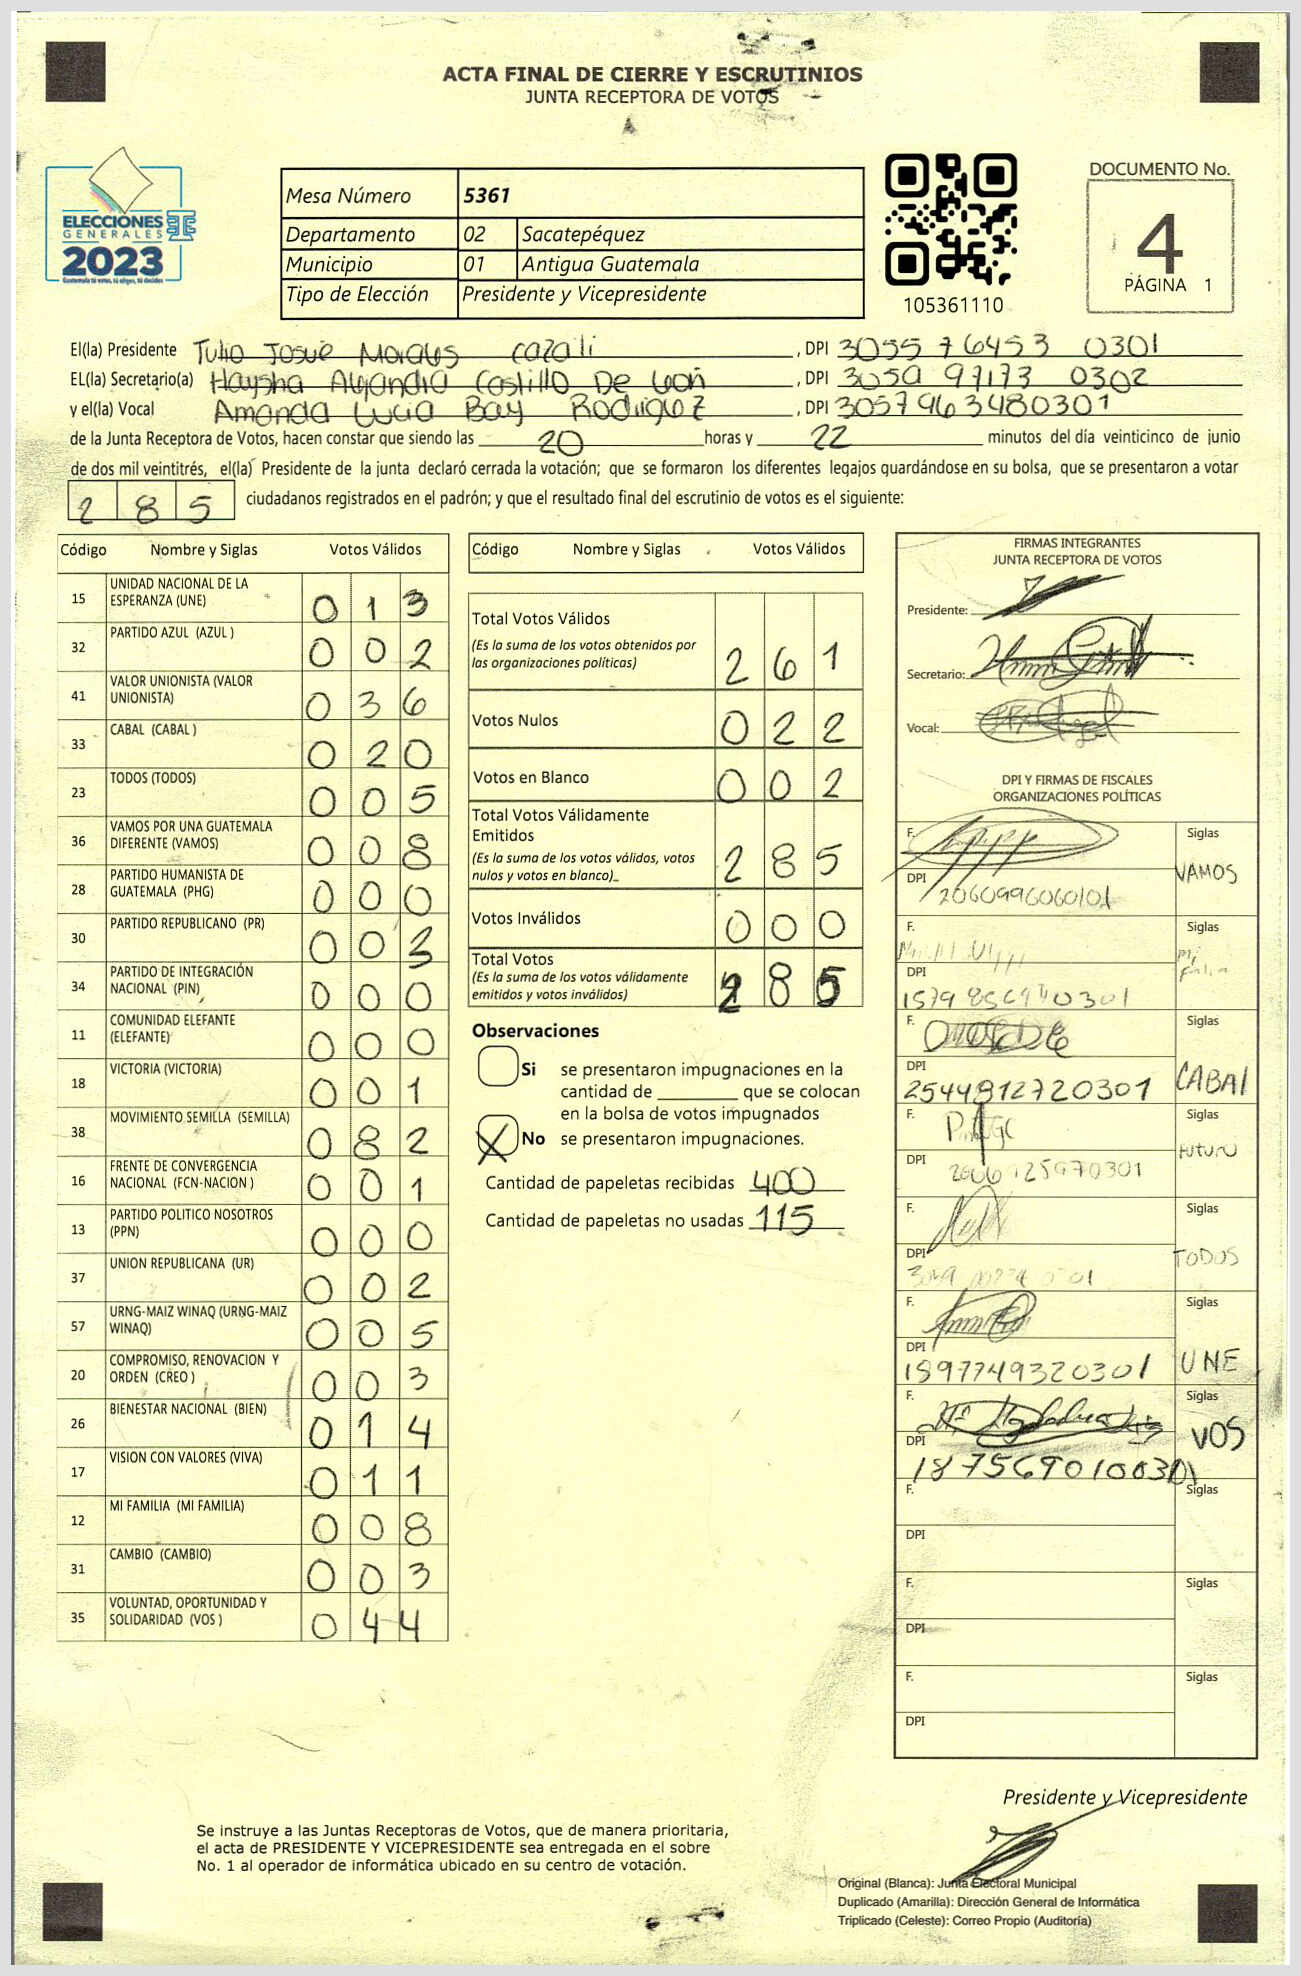 ACTA FINAL DE CIERRE Y ESCRUTINIOS
JUNTA RECEPTORA DE VOTOS
ELECCIONES
GENERALES
2023
Guatemala tú votas, tú eliges, tú decides
Mesa Número 5361
Departamento 02 Sacatepéquez
Municipio 01 Antigua Guatemala
Tipo de Elección Presidente y Vicepresidente
105361110
DOCUMENTO No.
4
PÁGINA 1
El(la) Presidente Tulio Josue Morales Cazali, DPI 3055 76453 0301
EL(la) Secretario(a) Haysha Alejandra Castillo De León, DPI 3050 97173 0302
y el(la) Vocal Amanda Lucia Bay Rodriguez, DPI 3057963480301
de la Junta Receptora de Votos, hacen constar que siendo las 20 horas y 22 minutos del día veinticinco de junio
de dos mil veintitrés, el(la) Presidente de la junta declaró cerrada la votación; que se formaron los diferentes legajos guardándose en su bolsa, que se presentaron a votar
285 ciudadanos registrados en el padrón; y que el resultado final del escrutinio de votos es el siguiente:
Código Nombre y Siglas Votos Válidos
15 UNIDAD NACIONAL DE LA ESPERANZA (UNE) 013
32 PARTIDO AZUL (AZUL ) 002
41 VALOR UNIONISTA (VALOR UNIONISTA) 036
33 CABAL (CABAL ) 020
23 TODOS (TODOS) 005
36 VAMOS POR UNA GUATEMALA DIFERENTE (VAMOS) 008
28 PARTIDO HUMANISTA DE GUATEMALA (PHG) 000
30 PARTIDO REPUBLICANO (PR) 003
34 PARTIDO DE INTEGRACIÓN NACIONAL (PIN) 000
11 COMUNIDAD ELEFANTE (ELEFANTE) 000
18 VICTORIA (VICTORIA) 001
38 MOVIMIENTO SEMILLA (SEMILLA) 082
16 FRENTE DE CONVERGENCIA NACIONAL (FCN-NACION ) 001
13 PARTIDO POLITICO NOSOTROS (PPN) 000
37 UNION REPUBLICANA (UR) 002
57 URNG-MAIZ WINAQ (URNG-MAIZ WINAQ) 005
20 COMPROMISO, RENOVACION Y ORDEN (CREO ) 003
26 BIENESTAR NACIONAL (BIEN) 014
17 VISION CON VALORES (VIVA) 011
12 MI FAMILIA (MI FAMILIA) 008
31 CAMBIO (CAMBIO) 003
35 VOLUNTAD, OPORTUNIDAD Y SOLIDARIDAD (VOS ) 044
Código Nombre y Siglas Votos Válidos
Total Votos Válidos 261
(Es la suma de los votos obtenidos por
las organizaciones políticas)
Votos Nulos 022
Votos en Blanco 002
Total Votos Válidamente
Emitidos 285
(Es la suma de los votos válidos, votos
nulos y votos en blanco)
Votos Inválidos 000
Total Votos 285
(Es la suma de los votos válidamente
emitidos y votos inválidos)
Observaciones
Si se presentaron impugnaciones en la
cantidad de ________ que se colocan
en la bolsa de votos impugnados
X No se presentaron impugnaciones.
Cantidad de papeletas recibidas 400
Cantidad de papeletas no usadas 115
FIRMAS INTEGRANTES
JUNTA RECEPTORA DE VOTOS
Presidente:
Secretario:
Vocal:
DPI Y FIRMAS DE FISCALES
ORGANIZACIONES POLÍTICAS
F. Siglas
VAMOS
DPI 2060996060101
F. Siglas
Mi
DPI
F. Siglas
DPI CABAL
2544912720301
F. Siglas
FUTURO
DPI
F. Siglas
TODOS
DPI
F. Siglas
DPI UNE
1897749320301
F. Siglas
DPI VOS
F. Siglas
DPI
F. Siglas
DPI
F. Siglas
DPI
Presidente y Vicepresidente
Se instruye a las Juntas Receptoras de Votos, que de manera prioritaria,
el acta de PRESIDENTE Y VICEPRESIDENTE sea entregada en el sobre
No. 1 al operador de informática ubicado en su centro de votación.
Original (Blanca): Junta Electoral Municipal
Duplicado (Amarilla): Dirección General de Informática
Triplicado (Celeste): Correo Propio (Auditoría)